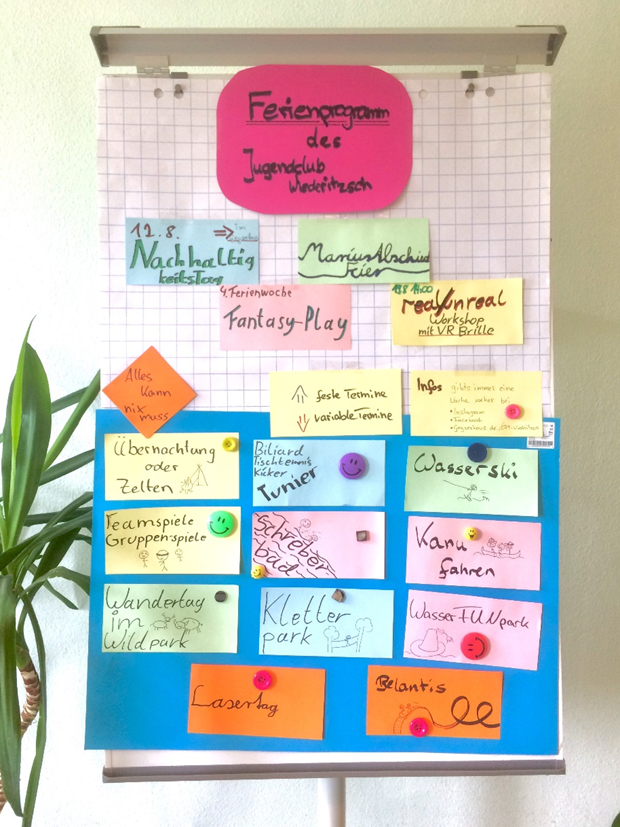 Ferienprogramm
des
Jugendclub
Wiederitzsch
12.8.
Nachhaltig
keitsTag
Marius Abschied
Feier
4. Ferienwoche
Fantasy-Play
14:00
real/unreal
Workshop
mit VR Brille
Alles
Kann
nix
muss
feste Termine
variable Termine
Infos gibts immer eine
Woche vorher bei
Instagram
Facebook
Übernachtung
oder
Zelten
Biliard
Tischtennis
Kicker
Tunier
Wasserski
Teamspiele
Gruppenspiele
Schreber
bad
Kanu
fahren
Wandertag
im
Wildpark
Kletter
park
Wasser FUN park
Lasertag
Belantis